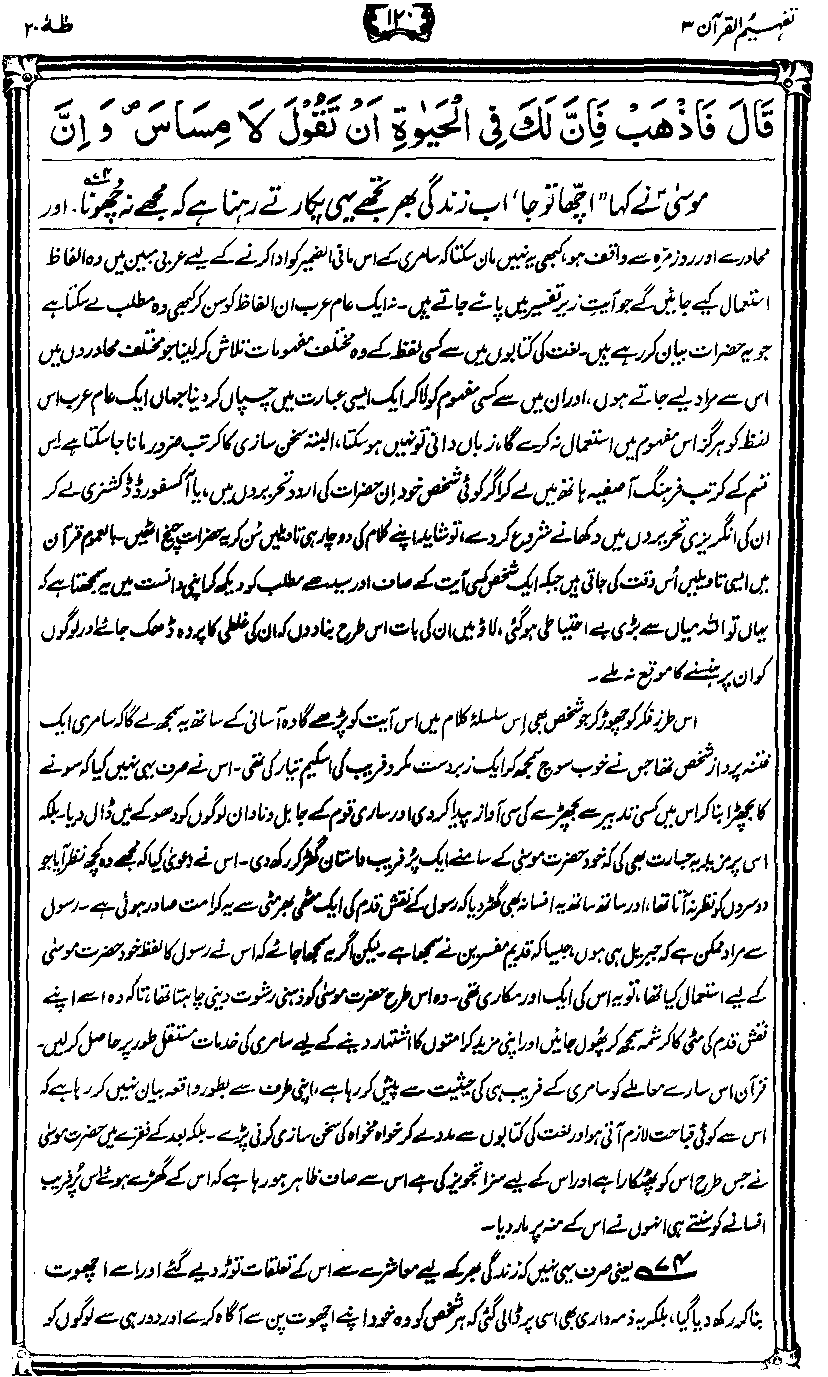 تفہیم القرآن ۳
۱۲۰
طٰہٰ ۲۰
قَالَ فَاذْهَبْ فَاِنَّ لَكَ فِی الْحَیٰوةِ اَنْ تَقُوْلَ لَا مِسَاسَ ۪ وَ اِنَّ
موسیٰؑ نے کہا ”اچھا تو جا، اب زندگی بھر تجھے یہی پکارتے رہنا ہے کہ مجھے نہ چھونا۷۴۔ اور
محاورے اور روزمرہ سے واقف ہو، کبھی یہ نہیں مان سکتا کہ سامری کے اس مافی الضمیر کو ادا کرنے کے لیے عربی مبین میں وہ الفاظ
استعمال کیے جائیں گے جو آیتِ زیرِ تفسیر میں پائے جاتے ہیں۔ نہ ایک عام عرب ان الفاظ کو سن کر کبھی وہ مطلب لے سکتا ہے
جو یہ حضرات بیان کر رہے ہیں۔ لغت کی کتابوں میں سے کسی لفظ کے وہ مختلف مفہومات تلاش کر لینا جو مختلف محاوروں میں
اس سے مراد لیے جاتے ہوں، اور ان میں سے کسی مفہوم کو لاکر ایک ایسی عبارت میں چسپاں کر دینا جہاں ایک عام عرب اس
لفظ کو ہرگز اس مفہوم میں استعمال نہ کرے گا، زباں دانی تو نہیں ہو سکتا، البتہ سخن سازی کا کرتب ضرور مانا جا سکتا ہے۔ اس
قسم کے کرتب فرہنگ آصفیہ ہاتھ میں لے کر اگر کوئی شخص خود اِن حضرات کی اردو تحریروں میں، یا آکسفورڈ ڈکشنری لے کر
ان کی انگریزی تحریروں میں دکھانے شروع کر دے، تو شاید اپنے کلام کی دوچار ہی تاویلیں سُن کر یہ حضرات چیخ اٹھیں۔ بالعموم قرآن
میں ایسی تاویلیں اُس وقت کی جاتی ہیں جبکہ ایک شخص کسی آیت کے صاف اور سیدھے مطلب کو دیکھ کر اپنی دانست میں یہ سمجھتا ہے کہ
یہاں تو اللہ میاں سے بڑی بے احتیاطی ہو گئی، لاؤ میں ان کی بات اس طرح بنا دوں کہ ان کی غلطی کا پردہ ڈھک جائے اور لوگوں
کو ان پر ہنسنے کا موقع نہ ملے۔
اس طرزِ فکر کو چھوڑ کر جو شخص بھی اِس سلسلۂ کلام میں اس آیت کو پڑھے گا وہ آسانی کے ساتھ یہ سمجھ لے گا کہ سامری ایک
فتنہ پرداز شخص تھا جس نے خوب سوچ سمجھ کر ایک زبردست مکر و فریب کی اسکیم تیار کی تھی۔ اس نے صرف یہی نہیں کیا کہ سونے
کا بچھڑا بنا کر اس میں کسی تدبیر سے بچھڑے کی سی آواز پیدا کر دی اور ساری قوم کے جاہل و نادان لوگوں کو دھوکے میں ڈال دیا۔ بلکہ
اس پر مزید یہ جسارت بھی کی کہ خود حضرت موسیٰ کے سامنے ایک پُر فریب داستان گھڑ کر رکھ دی۔ اس نے دعویٰ کیا کہ مجھے وہ کچھ نظر آیا جو
دوسروں کو نظر نہ آتا تھا، اور ساتھ ساتھ یہ افسانہ بھی گھڑ دیا کہ رسول کے نقش قدم کی ایک مٹھی بھر مٹی سے یہ کرامت صادر ہوئی ہے۔ رسول
سے مراد ممکن ہے کہ جبریل ہی ہوں، جیسا کہ قدیم مفسرین نے سمجھا ہے۔ لیکن اگر یہ سمجھا جائے کہ اس نے رسول کا لفظ خود حضرت موسیٰ
کے لیے استعمال کیا تھا، تو یہ اس کی ایک اور مکاری تھی۔ وہ اس طرح حضرت موسیٰ کو ذہنی رشوت دینی چاہتا تھا، تاکہ وہ اسے اپنے
نقش قدم کی مٹی کا کرشمہ سمجھ کر پھول جائیں اور اپنی مزید کرامتوں کا اشتہار دینے کے لیے سامری کی خدمات مستقل طور پر حاصل کرلیں۔
قرآن اس سارے معاملے کو سامری کے فریب ہی کی حیثیت سے پیش کر رہا ہے، اپنی طرف سے بطور واقعہ بیان نہیں کر رہا ہے کہ
اس سے کوئی قباحت لازم آتی ہو اور لغت کی کتابوں سے مدد لے کر خواہ مخواہ کی سخن سازی کرنی پڑے۔ بلکہ بعد کے فقرے میں حضرت موسیٰ
نے جس طرح اس کو پھٹکارا ہے اور اس کے لیے سزا تجویز کی ہے اس سے صاف ظاہر ہو رہا ہے کہ اس کے گھڑے ہوئے اس پُر فریب
افسانے کو سنتے ہی انہوں نے اس کے منہ پر مار دیا۔
۷۴ یعنی صرف یہی نہیں کہ زندگی بھر کے لیے معاشرے سے اس کے تعلقات توڑ دیے گئے اور اسے اچھوت
بنا کر رکھ دیا گیا، بلکہ یہ ذمہ داری بھی اسی پر ڈالی گئی کہ ہر شخص کو وہ خود اپنے اچھوت پن سے آگاہ کرے اور دور ہی سے لوگوں کو